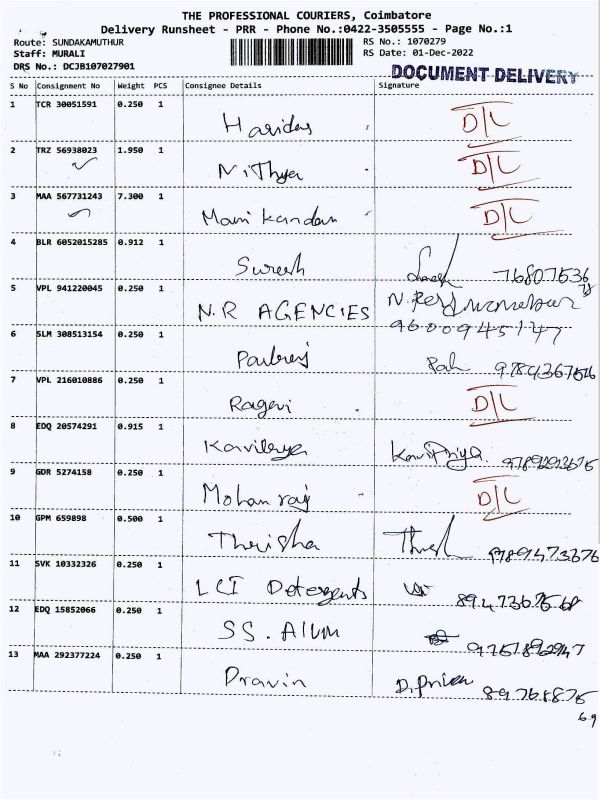 THE PROFESSIONAL COURIERS, Coimbatore
Delivery Runsheet - PRR - Phone No.:0422-3505555 - Page No.:1
Route: SUNDAKAMUTHUR
RS No.: 1070279
Staff: MURALI
RS Date: 01-Dec-2022
DRS No.: DCJB107027901
DOCUMENT DELIVERY
S No Consignment No Weight PCS Consignee Details Signature
1 TCR 30051591 0.250 1 Haridas D/L
2 TRZ 56938023 1.950 1 Nithya D/L
3 MAA 567731243 7.300 1 Mani kandan D/L
4 BLR 6052015285 0.912 1 Suresh
5 VPL 941220045 0.250 1 N.R AGENCIES
9600945147
6 SLM 308513154 0.250 1
7 VPL 216010886 0.250 1 Ragavi D/L
8 EDQ 20574291 0.915 1 KaviPriya
9 GDR 5274158 0.250 1 Mohan raj D/L
10 GPM 659898 0.500 1 Therisha
11 SVK 10332326 0.250 1 LCI Detergents
12 EDQ 15852066 0.250 1 SS. AIUM
13 MAA 292377224 0.250 1 Pravin
69